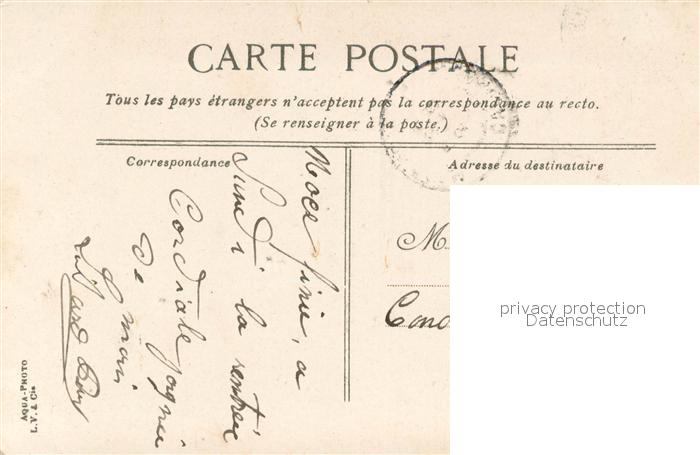 CARTE POSTALE
Tous les pays étrangers n'acceptent pas la correspondance au recto.
(Se renseigner à la poste.)
Correspondance
Adresse du destinataire
Noce finie, a
Lundi la rentrée
Cordiale
de
main
M
Cond
privacy protection
Datenschutz
AQUA-PHOTO
L. V. & Cie